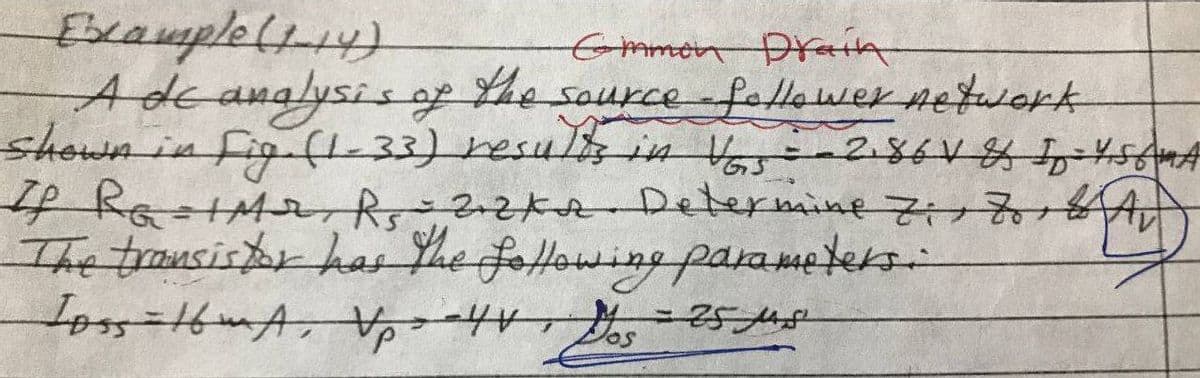 Example (1-14)
Common Drain
A dc analysis of the source-follower network
shown in Fig. (1-33) results in VGS = -2.86 V & ID = 4.56 mA
If RG = 1MΩ, Rs = 2.2kΩ. Determine Zi, Zo, & Av
The transistor has the following parameters:
IDSS = 16 mA, Vp = -4V, yos = 25 μS